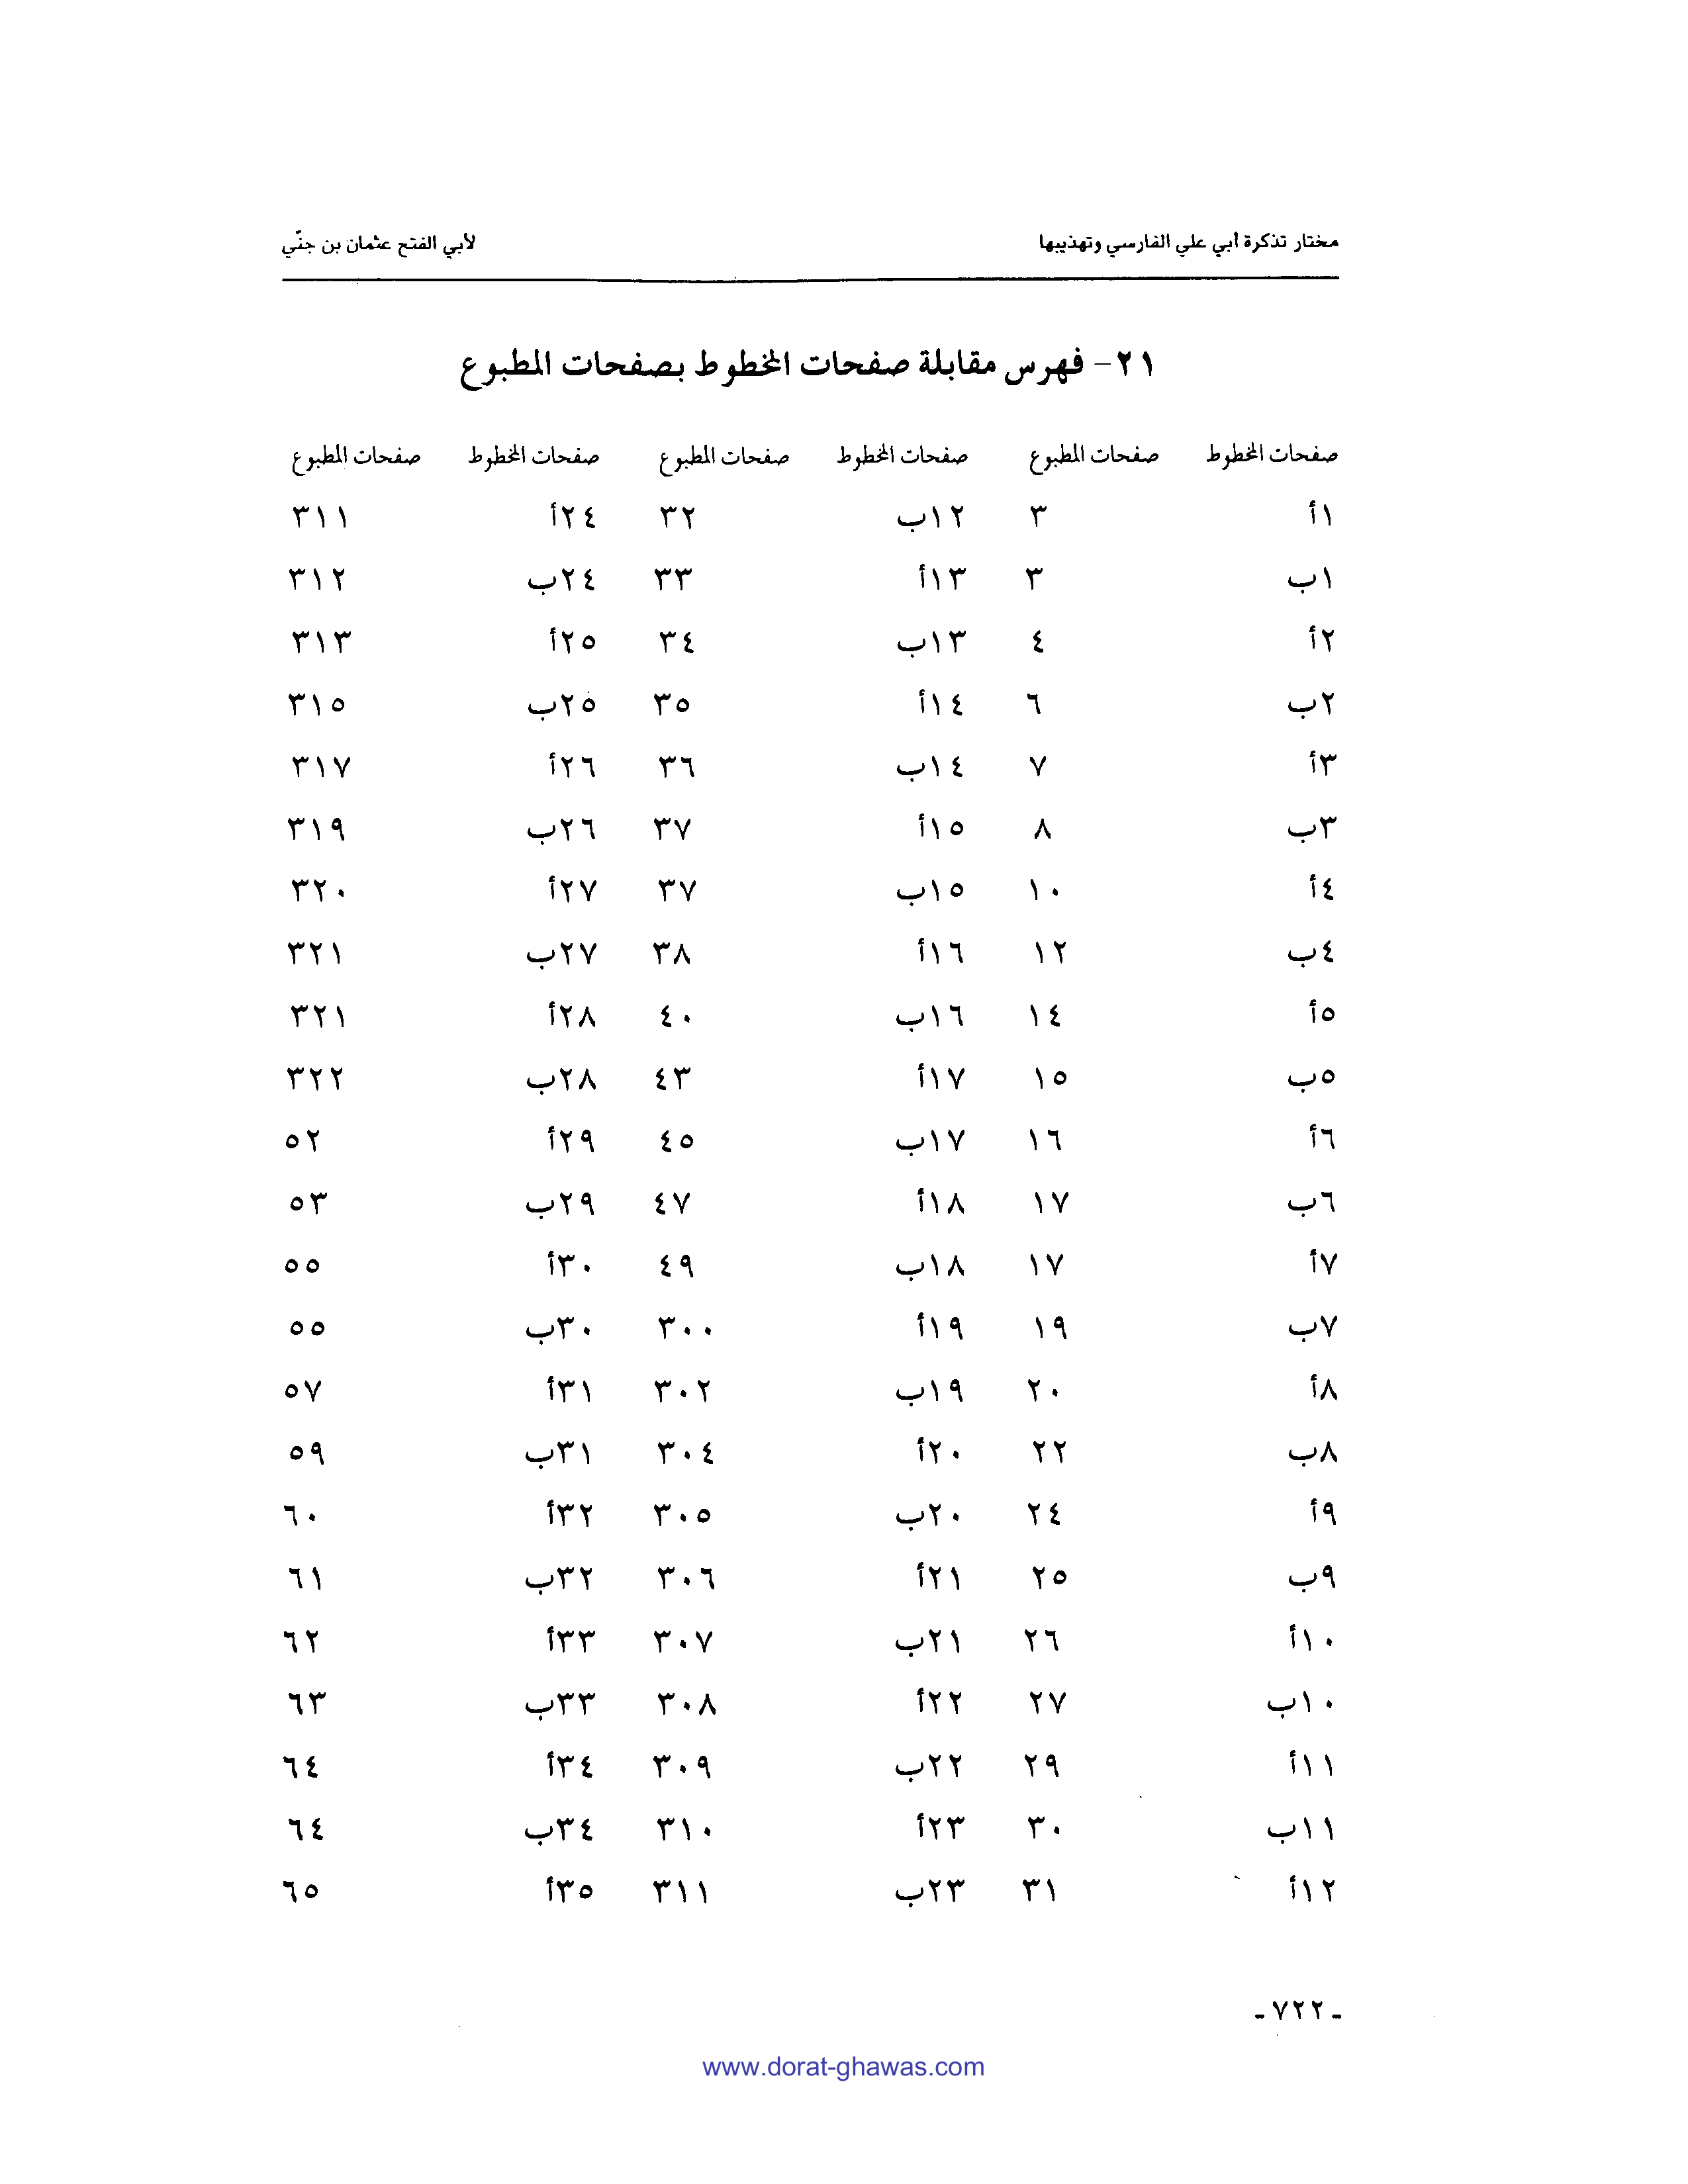 مختار تذكرة أبي علي الفارسي وتهذيبها لأبي الفتح عثمان بن جنّي
٢١- فهرس مقابلة صفحات المخطوط بصفحات المطبوع
صفحات المخطوط صفحات المطبوع صفحات المخطوط صفحات المطبوع صفحات المخطوط صفحات المطبوع
١أ ٣ ١٢ب ٣٢ ٢٤أ ٣١١
١ب ٣ ١٣أ ٣٣ ٢٤ب ٣١٢
٢أ ٤ ١٣ب ٣٤ ٢٥أ ٣١٣
٢ب ٦ ١٤أ ٣٥ ٢٥ب ٣١٥
٣أ ٧ ١٤ب ٣٦ ٢٦أ ٣١٧
٣ب ٨ ١٥أ ٣٧ ٢٦ب ٣١٩
٤أ ١٠ ١٥ب ٣٧ ٢٧أ ٣٢٠
٤ب ١٢ ١٦أ ٣٨ ٢٧ب ٣٢١
٥أ ١٤ ١٦ب ٤٠ ٢٨أ ٣٢١
٥ب ١٥ ١٧أ ٤٣ ٢٨ب ٣٢٢
٦أ ١٦ ١٧ب ٤٥ ٢٩أ ٥٢
٦ب ١٧ ١٨أ ٤٧ ٢٩ب ٥٣
٧أ ١٧ ١٨ب ٤٩ ٣٠أ ٥٥
٧ب ١٩ ١٩أ ٣٠٠ ٣٠ب ٥٥
٨أ ٢٠ ١٩ب ٣٠٢ ٣١أ ٥٧
٨ب ٢٢ ٢٠أ ٣٠٤ ٣١ب ٥٩
٩أ ٢٤ ٢٠ب ٣٠٥ ٣٢أ ٦٠
٩ب ٢٥ ٢١أ ٣٠٦ ٣٢ب ٦١
١٠أ ٢٦ ٢١ب ٣٠٧ ٣٣أ ٦٢
١٠ب ٢٧ ٢٢أ ٣٠٨ ٣٣ب ٦٣
١١أ ٢٩ ٢٢ب ٣٠٩ ٣٤أ ٦٤
١١ب ٣٠ ٢٣أ ٣١٠ ٣٤ب ٦٤
١٢أ ٣١ ٢٣ب ٣١١ ٣٥أ ٦٥
- ٧٢٢ -
www.dorat-ghawas.com